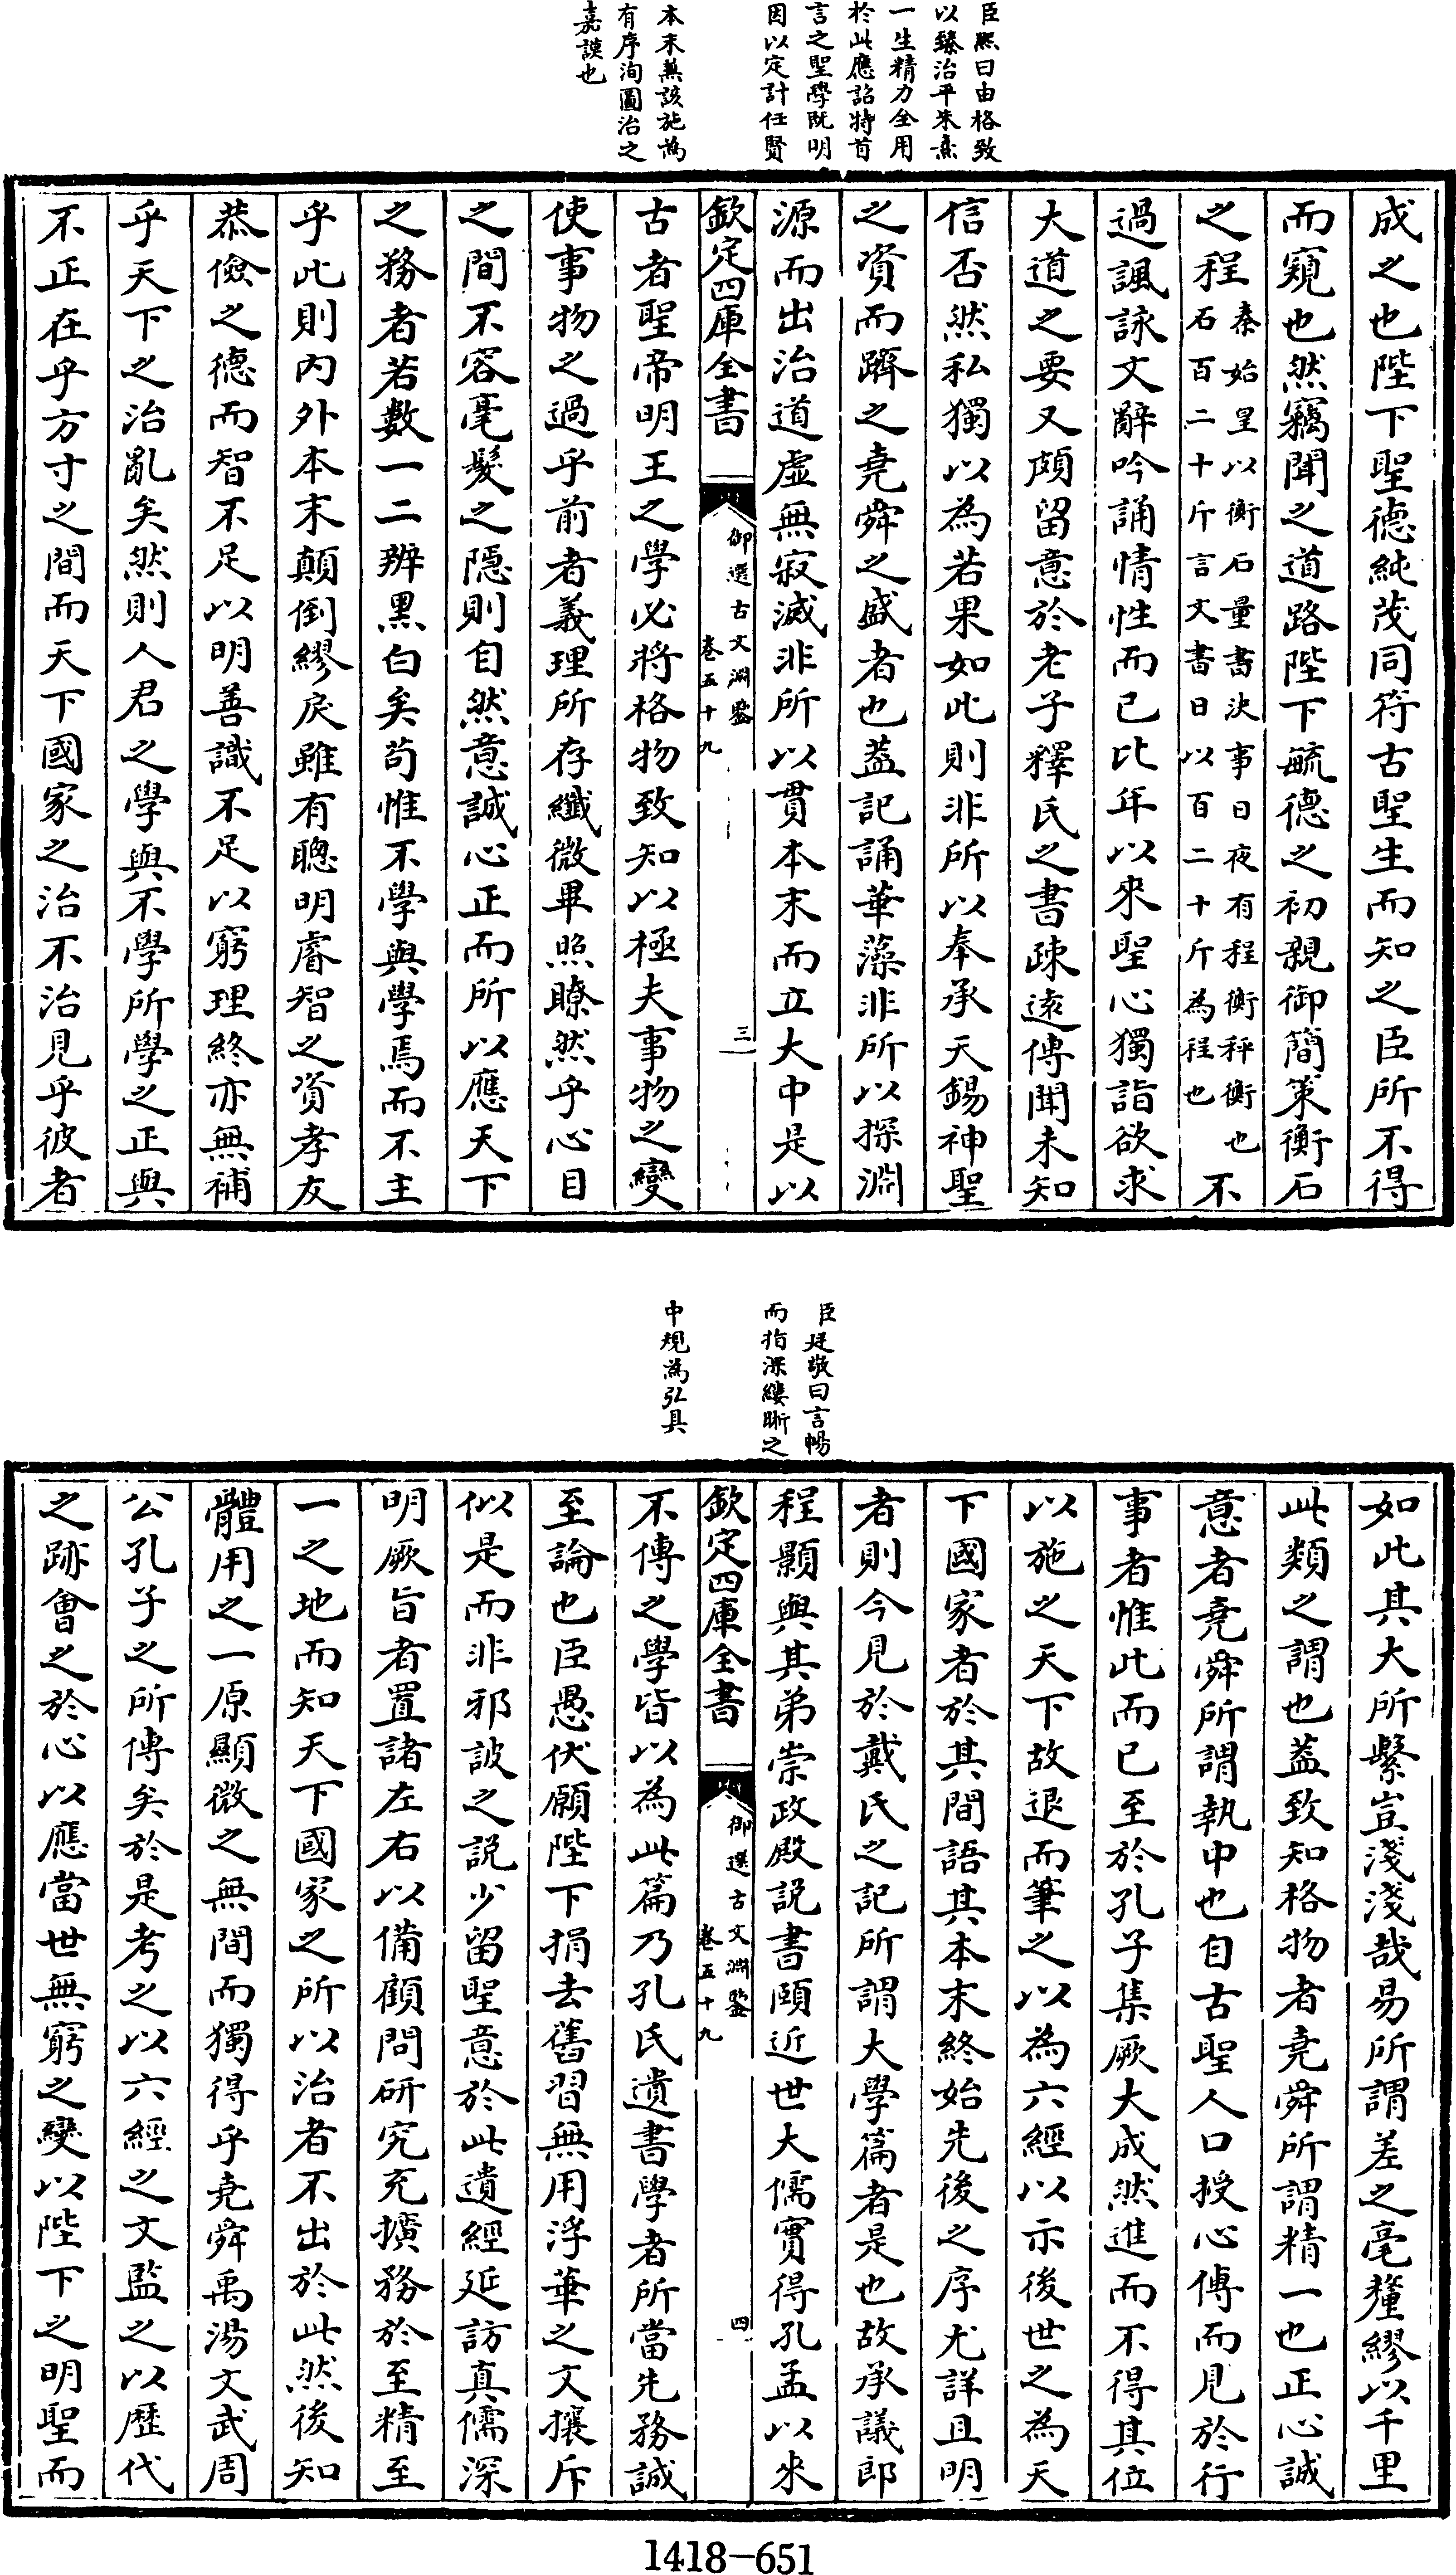 臣熙曰由格致
以臻治平朱熹
一生精力全用
於此應詔特首
言之聖學既明
因以定計任賢
本末兼該施為
有序洵圖治之
嘉謨也
成之也陛下聖德純茂同符古聖生而知之臣所不得
而窺也然竊聞之道路陛下毓德之初親御簡策衡石
之程秦始皇以衡石量書決事日夜有程衡秤衡也石百二十斤言文書日以百二十斤為程也不
過諷詠文辭吟誦情性而已比年以來聖心獨詣欲求
大道之要又頗留意於老子釋氏之書疎遠傳聞未知
信否然私獨以為若果如此則非所以奉承天錫神聖
之資而躋之堯舜之盛者也蓋記誦華藻非所以探淵
源而出治道虛無寂滅非所以貫本末而立大中是以
欽定四庫全書
御選古文淵鑒
卷五十九
三
古者聖帝明王之學必將格物致知以極夫事物之變
使事物之過乎前者義理所存纖微畢照瞭然乎心目
之間不容毫髮之隱則自然意誠心正而所以應天下
之務者若數一二辨黑白矣苟惟不學與學焉而不主
乎此則內外本末顛倒繆戾雖有聰明睿智之資孝友
恭儉之德而智不足以明善識不足以窮理終亦無補
乎天下之治亂矣然則人君之學與不學所學之正與
不正在乎方寸之間而天下國家之治不治見乎彼者
臣廷敬曰言暢
而指深縷晰之
中規為弘具
如此其大所繫豈淺淺哉易所謂差之毫釐繆以千里
此類之謂也蓋致知格物者堯舜所謂精一也正心誠
意者堯舜所謂執中也自古聖人口授心傳而見於行
事者惟此而已至於孔子集厥大成然進而不得其位
以施之天下故退而筆之以為六經以示後世之為天
下國家者於其間語其本末終始先後之序尤詳且明
者則今見於戴氏之記所謂大學篇者是也故承議郎
程顥與其弟崇政殿說書頤近世大儒實得孔孟以來
欽定四庫全書
御選古文淵鑒
卷五十九
四
不傳之學皆以為此篇乃孔氏遺書學者所當先務誠
至論也臣愚伏願陛下捐去舊習無用浮華之文攘斥
似是而非邪詖之說少留聖意於此遺經延訪真儒深
明厥旨者置諸左右以備顧問研究充擴務於至精至
一之地而知天下國家之所以治者不出於此然後知
體用之一原顯微之無間而獨得乎堯舜禹湯文武周
公孔子之所傳矣於是考之以六經之文監之以歷代
之跡會之於心以應當世無窮之變以陛下之明聖而
1418-651